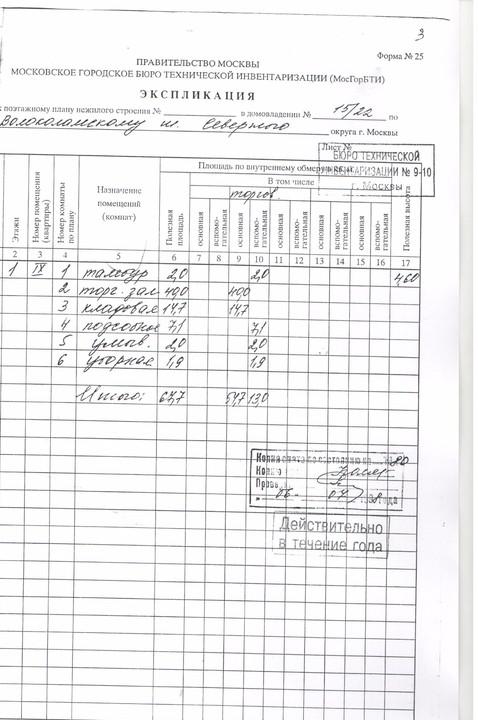 3
Форма № 25
ПРАВИТЕЛЬСТВО МОСКВЫ
МОСКОВСКОЕ ГОРОДСКОЕ БЮРО ТЕХНИЧЕСКОЙ ИНВЕНТАРИЗАЦИИ (МосГорБТИ)
ЭКСПЛИКАЦИЯ
к поэтажному плану нежилого строения № в домовладении № 15/22 по
Волоколамскому ш. Северного округа г. Москвы
Лист №
БЮРО ТЕХНИЧЕСКОЙ
ИНВЕНТАРИЗАЦИИ № 9-10
г. Москвы
Этажи
Номер помещения (квартиры)
Номер комнаты по плану
Назначение помещений (комнат)
Площадь по внутреннему обмеру
В том числе
торгов.
Полезная площадь
основная
вспомогательная
основная
вспомогательная
основная
вспомогательная
основная
вспомогательная
основная
вспомогательная
Полезная высота
2 3 4 5 6 7 8 9 10 11 12 13 14 15 16 17
1 IX 1 тамбур 2,0 2,0 4,60
2 торг. зал 40,0 40,0
3 кладовая 14,7 14,7
4 подсобное 7,1 7,1
5 умыв. 2,0 2,0
6 уборная 1,9 1,9
Итого: 67,7 54,7 13,0
Копия снята по состоянию на
Действительно
в течение года